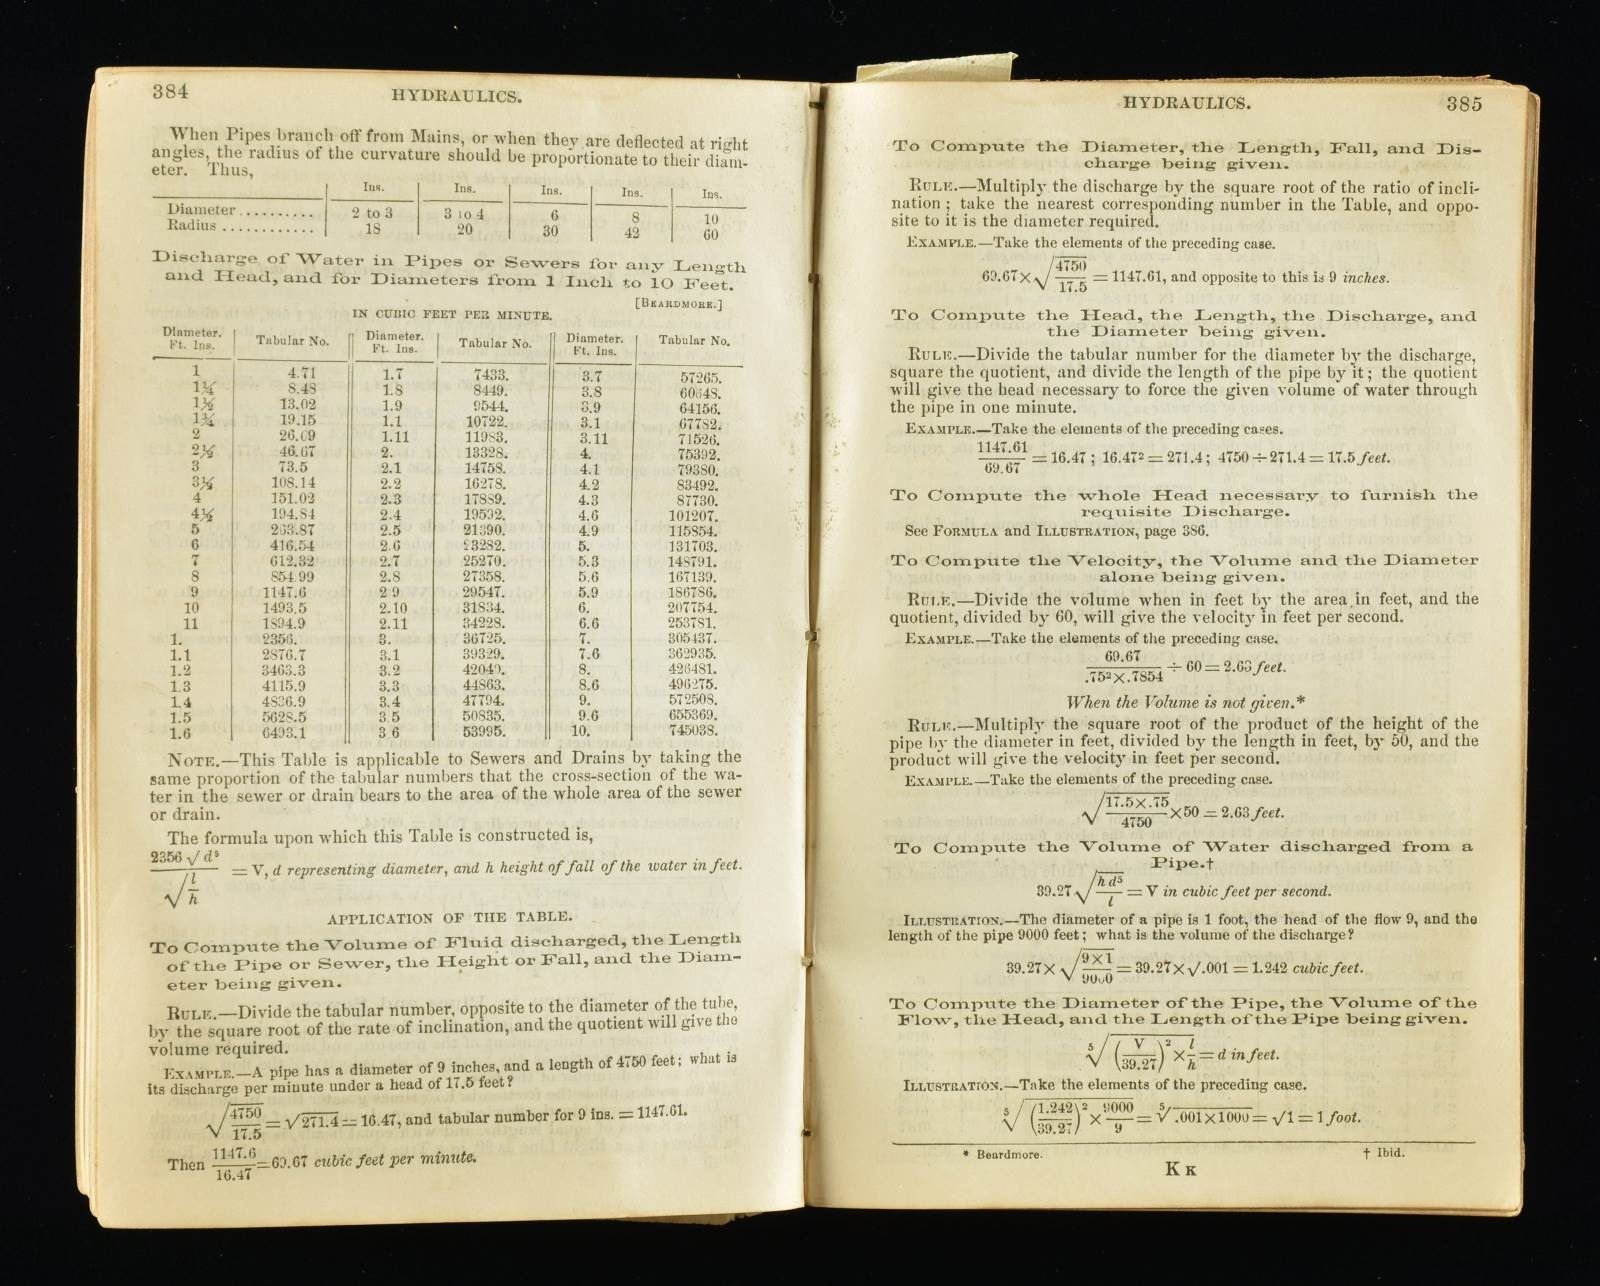 384
HYDRAULICS.
When Pipes branch off from Mains, or when they are deflected at right
angles, the radius of the curvature should be proportionate to their diam-
eter. Thus,
Ins. Ins. Ins. Ins. Ins.
Diameter.......... 2 to 3 3 to 4 6 8 10
Radius ............ 18 20 30 42 60
Discharge of Water in Pipes or Sewers for any Length
and Head, and for Diameters from 1 Inch to 10 Feet.
[BEARDMORE.]
IN CUBIC FEET PER MINUTE.
Diameter. Tabular No. Diameter. Tabular No. Diameter. Tabular No.
Ft. Ins. Ft. Ins. Ft. Ins.
1 4.71 1.7 7433. 3.7 57265.
1¼ 8.48 1.8 8449. 3.8 60648.
1½ 13.02 1.9 9544. 3.9 64156.
1¾ 19.15 1.1 10722. 3.1 67782.
2 26.69 1.11 11983. 3.11 71526.
2½ 46.67 2. 13328. 4. 75392.
3 73.5 2.1 14758. 4.1 79380.
3½ 108.14 2.2 16278. 4.2 83492.
4 151.02 2.3 17889. 4.3 87730.
4½ 194.84 2.4 19592. 4.6 101207.
5 263.87 2.5 21390. 4.9 115854.
6 416.54 2.6 23282. 5. 131703.
7 612.32 2.7 25270. 5.3 148791.
8 854.99 2.8 27358. 5.6 167139.
9 1147.6 2 9 29547. 5.9 186786.
10 1493.5 2.10 31834. 6. 207754.
11 1894.9 2.11 34228. 6.6 253781.
1. 2356. 3. 36725. 7. 305437.
1.1 2876.7 3.1 39329. 7.6 362935.
1.2 3463.3 3.2 42040. 8. 426481.
1.3 4115.9 3.3 44863. 8.6 496275.
1.4 4836.9 3.4 47794. 9. 572508.
1.5 5628.5 3.5 50835. 9.6 655369.
1.6 6493.1 3 6 53995. 10. 745038.
NOTE.—This Table is applicable to Sewers and Drains by taking the
same proportion of the tabular numbers that the cross-section of the wa-
ter in the sewer or drain bears to the area of the whole area of the sewer
or drain.
The formula upon which this Table is constructed is,
2356 √ d⁵ / √ l/h = V, d representing diameter, and h height of fall of the water in feet.
APPLICATION OF THE TABLE.
To Compute the Volume of Fluid discharged, the Length
of the Pipe or Sewer, the Height or Fall, and the Diam-
eter being given.
RULE.—Divide the tabular number, opposite to the diameter of the tube,
by the square root of the rate of inclination, and the quotient will give the
volume required.
EXAMPLE.—A pipe has a diameter of 9 inches, and a length of 4750 feet; what is
its discharge per minute under a head of 17.5 feet?
√ 4750/17.5 = √271.4 = 16.47, and tabular number for 9 ins. = 1147.61.
Then 1147.6/16.47 = 69.67 cubic feet per minute.
HYDRAULICS.
385
To Compute the Diameter, the Length, Fall, and Dis-
charge being given.
RULE.—Multiply the discharge by the square root of the ratio of incli-
nation; take the nearest corresponding number in the Table, and oppo-
site to it is the diameter required.
EXAMPLE.—Take the elements of the preceding case.
69.67 × √ 4750/17.5 = 1147.61, and opposite to this is 9 inches.
To Compute the Head, the Length, the Discharge, and
the Diameter being given.
RULE.—Divide the tabular number for the diameter by the discharge,
square the quotient, and divide the length of the pipe by it; the quotient
will give the head necessary to force the given volume of water through
the pipe in one minute.
EXAMPLE.—Take the elements of the preceding cases.
1147.61/69.67 = 16.47; 16.47² = 271.4; 4750 ÷ 271.4 = 17.5 feet.
To Compute the whole Head necessary to furnish the
requisite Discharge.
See FORMULA and ILLUSTRATION, page 386.
To Compute the Velocity, the Volume and the Diameter
alone being given.
RULE.—Divide the volume when in feet by the area in feet, and the
quotient, divided by 60, will give the velocity in feet per second.
EXAMPLE.—Take the elements of the preceding case.
69.67/.75² × .7854 ÷ 60 = 2.63 feet.
When the Volume is not given.*
RULE.—Multiply the square root of the product of the height of the
pipe by the diameter in feet, divided by the length in feet, by 50, and the
product will give the velocity in feet per second.
EXAMPLE.—Take the elements of the preceding case.
√ 17.5 × .75/4750 × 50 = 2.63 feet.
To Compute the Volume of Water discharged from a
Pipe.†
39.27 √ h d⁵/l = V in cubic feet per second.
ILLUSTRATION.—The diameter of a pipe is 1 foot, the head of the flow 9, and the
length of the pipe 9000 feet; what is the volume of the discharge?
39.27 × √ 9 × 1/9000 = 39.27 × √.001 = 1.242 cubic feet.
To Compute the Diameter of the Pipe, the Volume of the
Flow, the Head, and the Length of the Pipe being given.
⁵√ (V/39.27)² × l/h = d in feet.
ILLUSTRATION.—Take the elements of the preceding case.
⁵√ (1.242/39.27)² × 9000/9 = ⁵√ .001 × 1000 = √1 = 1 foot.
* Beardmore. † Ibid.
K K